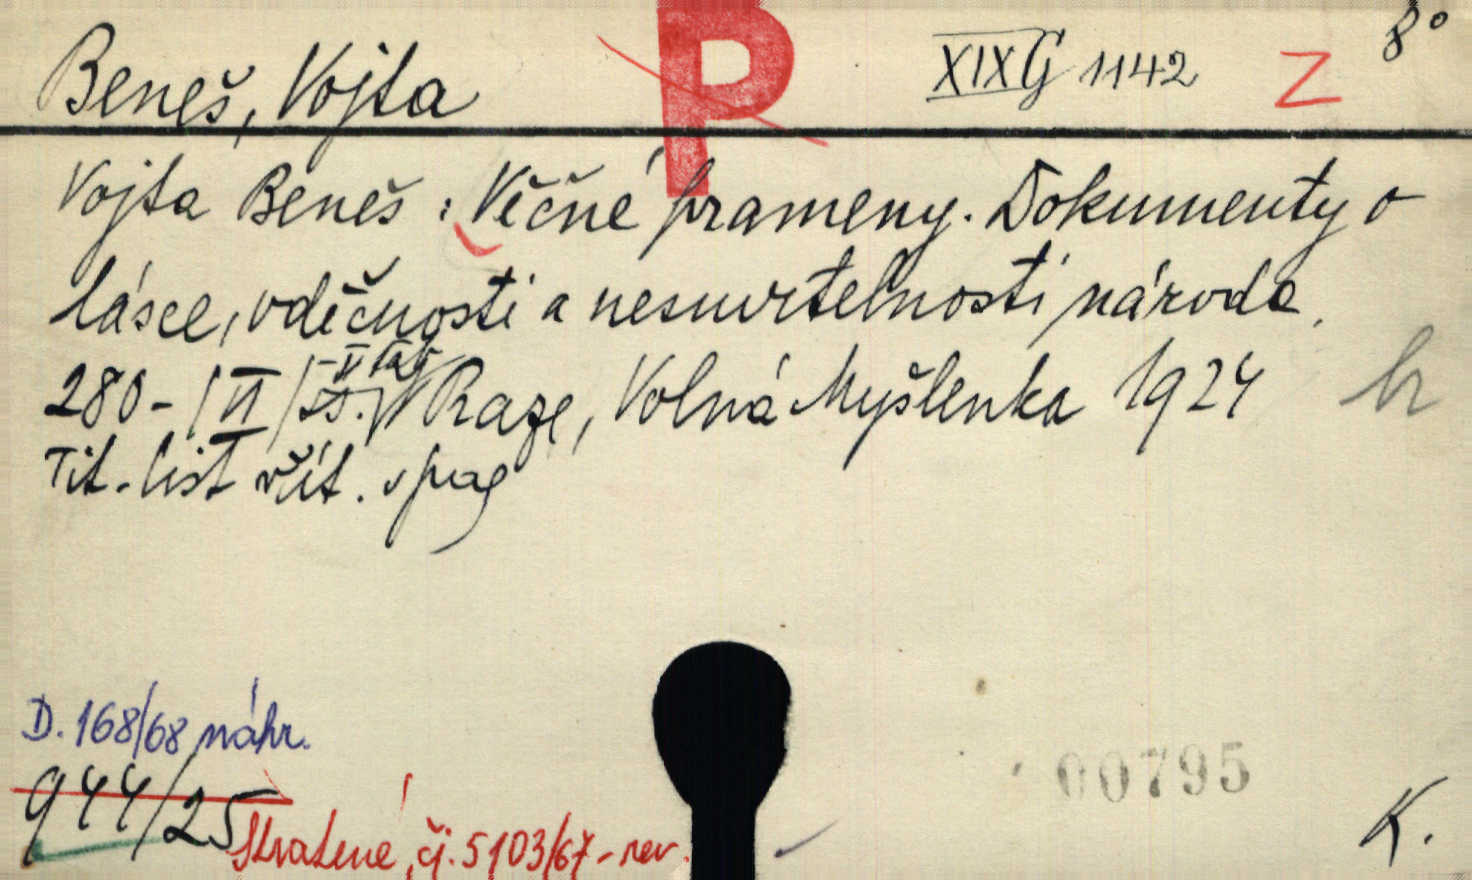 P
8°
XIX G 1142 Z
Beneš, Vojta
Vojta Beneš: Věčné prameny. Dokumenty o
lásce, vděčnosti a nesmrtelnosti národa.
280-|VI|
V Praze, Volná Myšlenka 1924
Tit. list včít. v pag
D. 168/68 náhr.
944/25
Ztracené, čj. 5103/67-rev.
00795
K.